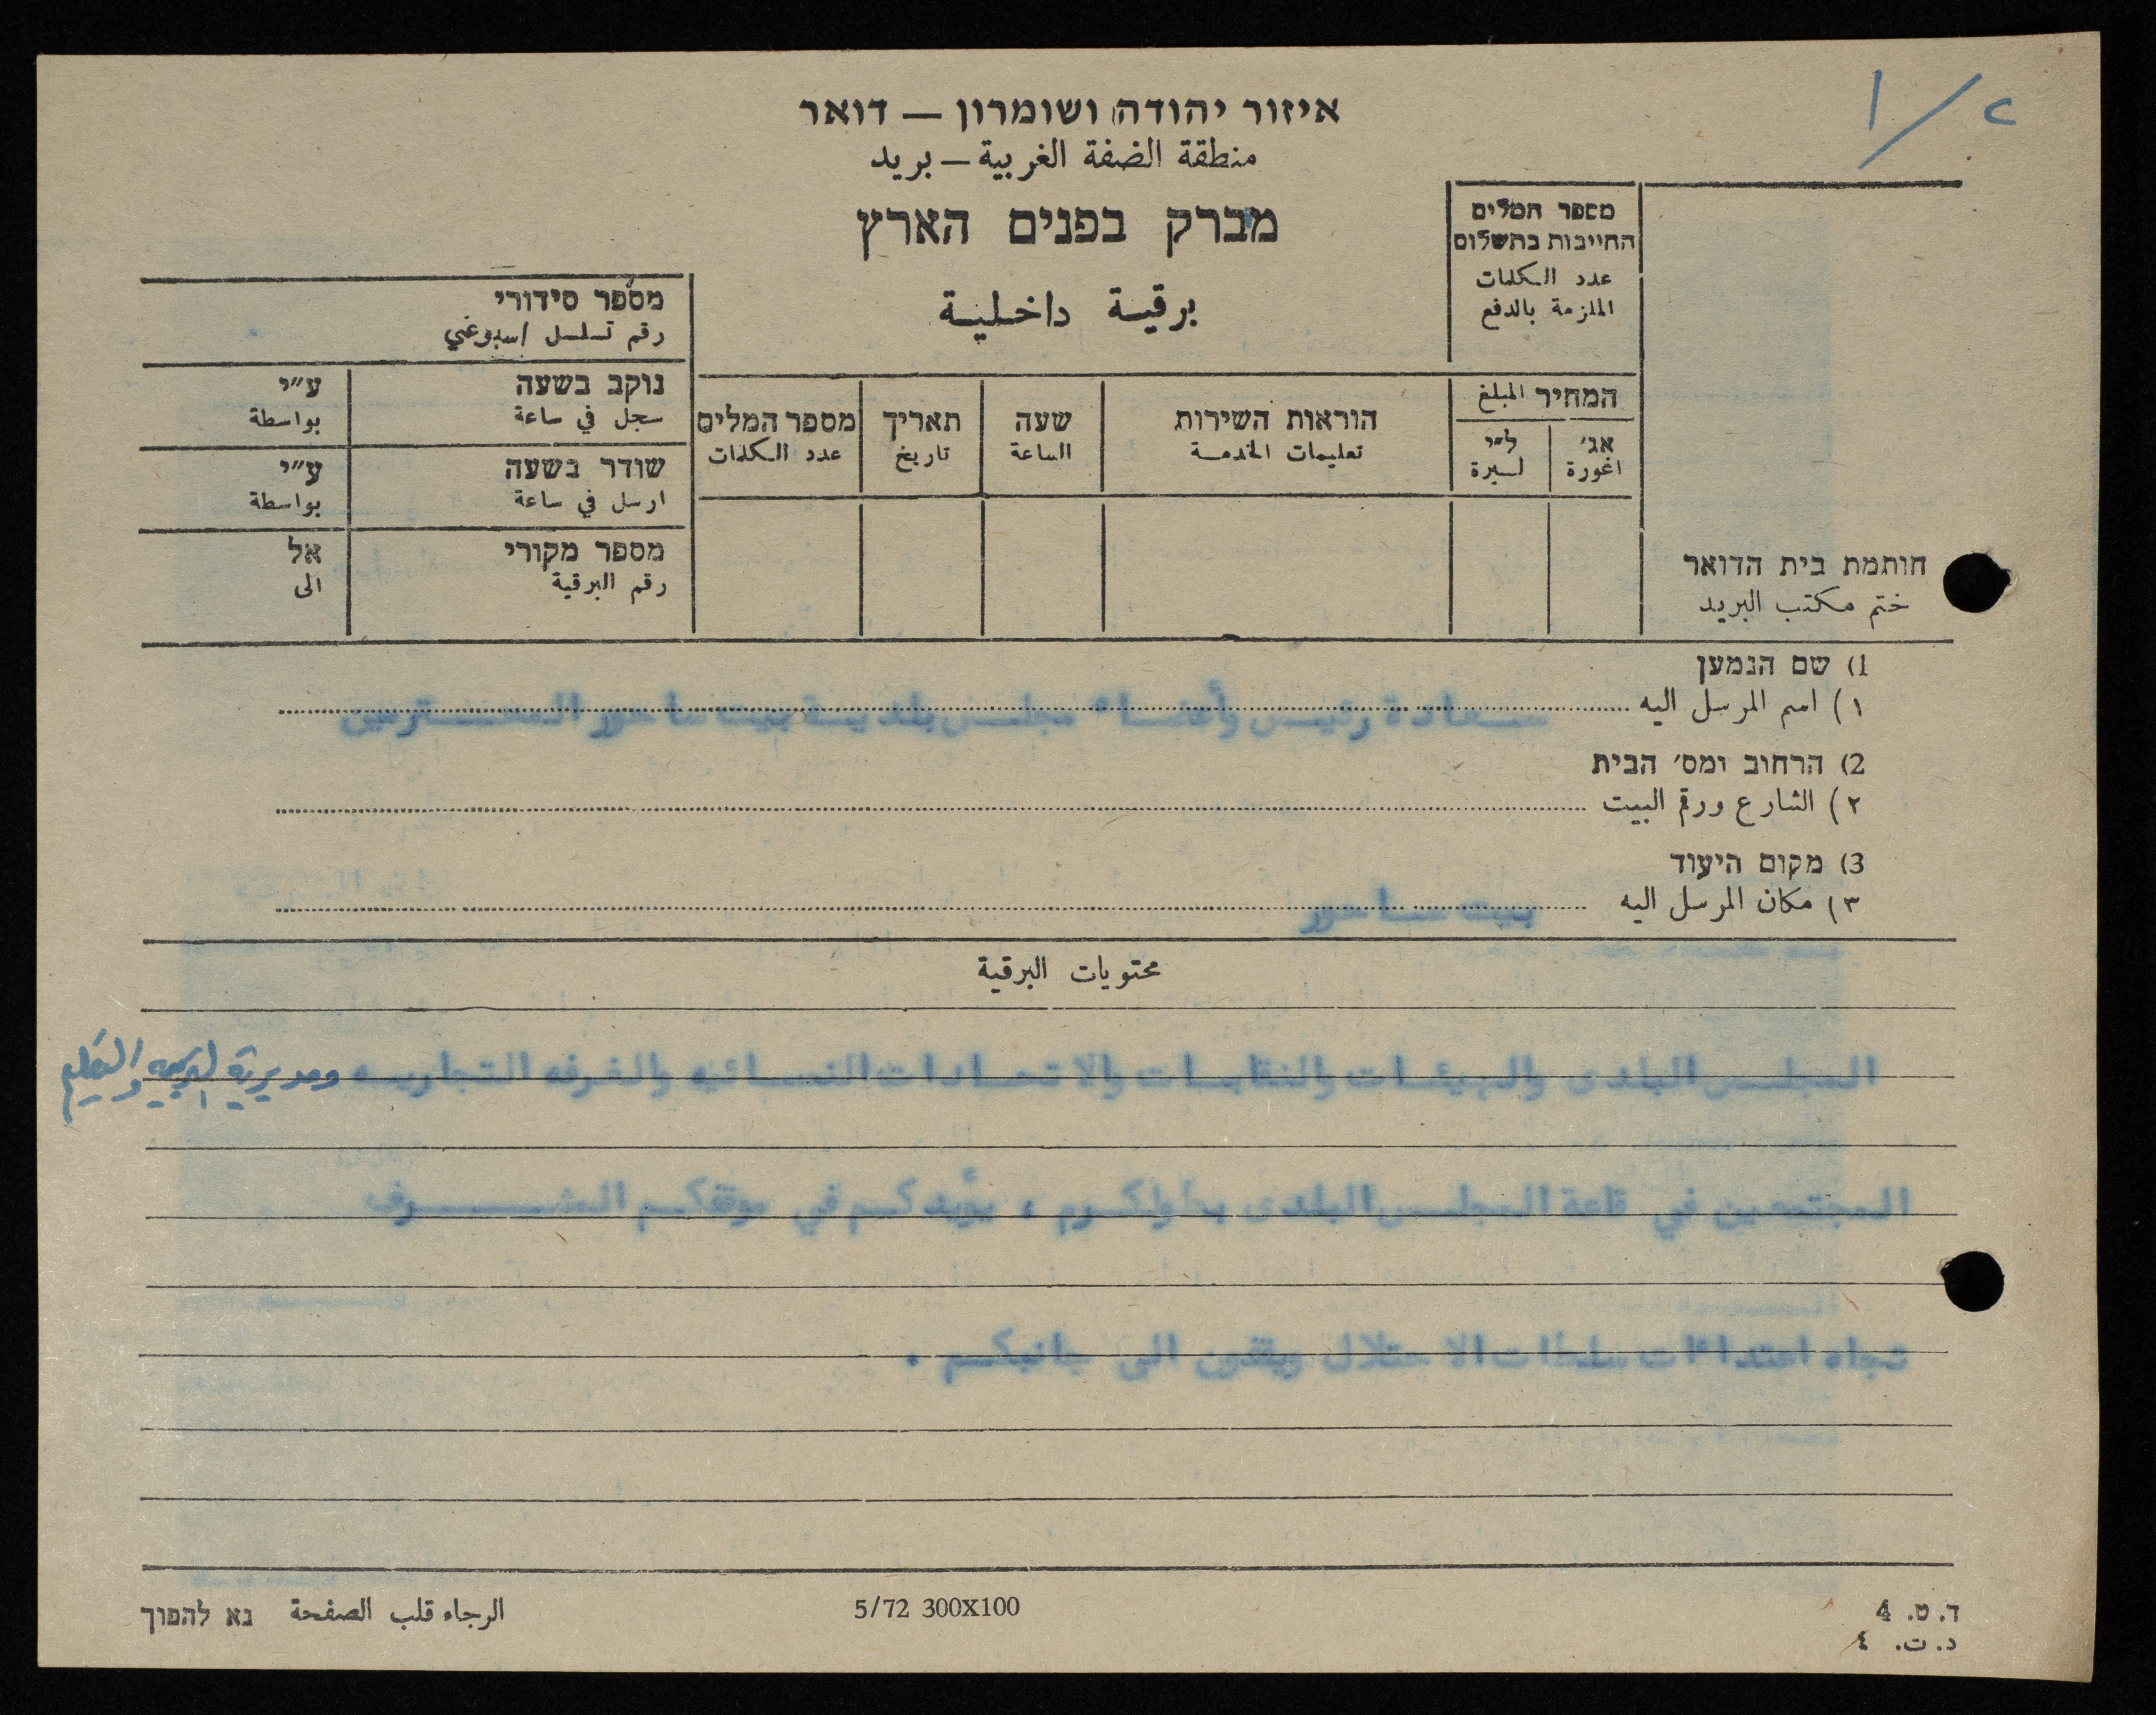 ح / ١
איזור יהודה ושומרון — דואר
منطقة الضفة الغربية — بريد
מברק בפנים הארץ
برقية داخلية
מספר המלים
החייבות בתשלום
عدد الكلمات
الملزمة بالدفع
מספר סידורי
رقم تسلسل اسبوعي
נוקב בשעה ע״י
سجل في ساعة بواسطة
שודר בשעה ע״י
ارسل في ساعة بواسطة
מספר מקורי אל
رقم البرقية الى
המחיר المبلغ
אג׳ ל״י
اغورة ليرة
הוראות השירות
تعليمات الخدمة
שעה
الساعة
תאריך
تاريخ
מספר המלים
عدد الكلمات
חותמת בית הדואר
ختم مكتب البريد
1) שם הנמען
١) اسم المرسل اليه سعادة رئيس وأعضاء مجلس بلدية بيت ساحور المحترمين
2) הרחוב ומס׳ הבית
٢) الشارع ورقم البيت
3) מקום היעוד
٣) مكان المرسل اليه بيت ساحور
محتويات البرقية
المجلس البلدى والهيئات والنقابات والاتحادات النسائيه والغرفه التجاريه ومديرية التربيه والتعليم
المجتمعين في قاعة المجلس البلدى بطولكرم ، يؤيدكم في موقفكم المشرف
تجاه اعتداءات سلطات الاحتلال ويقفون الى جانبكم .
ד. ט. 4
د. ت. ٤
5/72 300X100
الرجاء قلب الصفحة נא להפוך